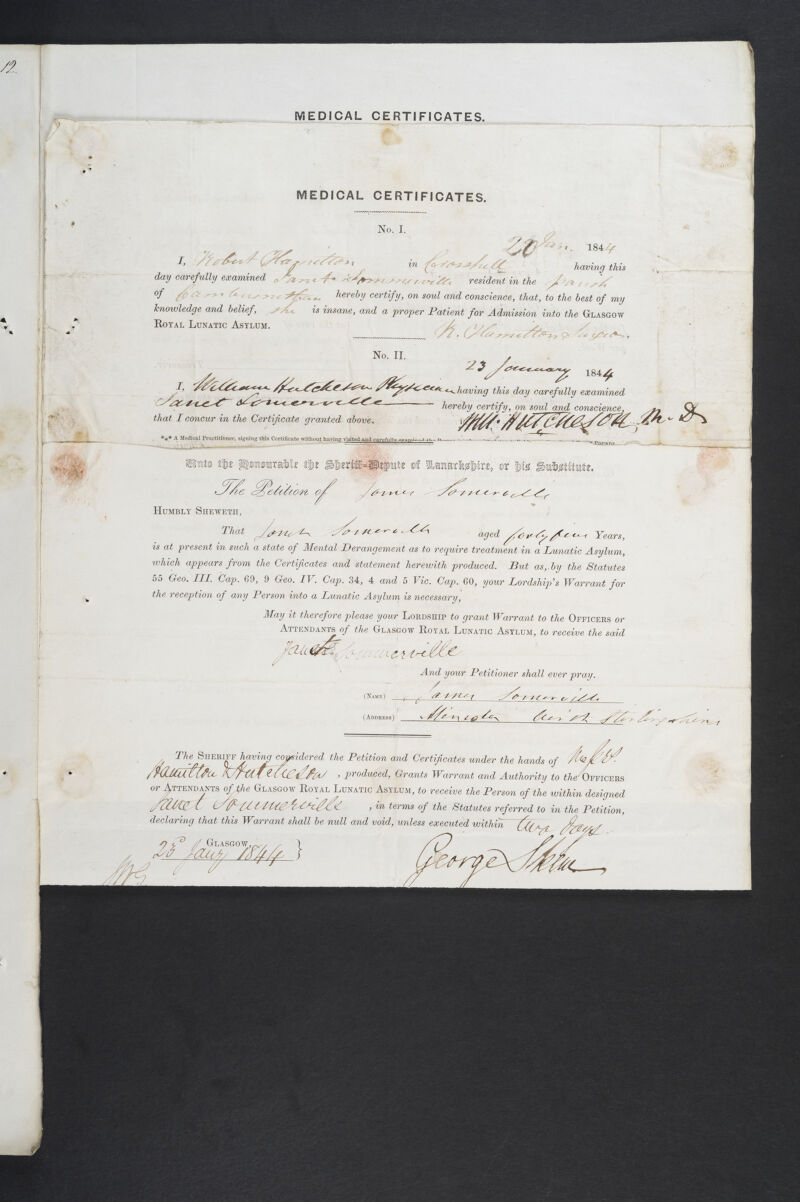 12
MEDICAL CERTIFICATES.
MEDICAL CERTIFICATES.
No. I.
20 Jan. 1844
I, Robert Hamilton in Crosshill having this
day carefully examined Janet Sommerville resident in the parish
of hereby certify, on soul and conscience, that, to the best of my
knowledge and belief, she is insane, and a proper Patient for Admission into the GLASGOW
ROYAL LUNATIC ASYLUM.
R. Hamilton Surgeon
No. II.
23 January 1844
I, William Hutcheson Physician having this day carefully examined
Janet Somerville hereby certify, on soul and conscience,
that I concur in the Certificate granted above.
Wm. Hutcheson, M. D
*** A Medical Practitioner, signing this Certificate without having visited and carefully examined the
Unto the Honourable the Sheriff-Depute of Lanarkshire, or his Substitute.
The Petition of James Somerville
HUMBLY SHEWETH,
That Janet Somerville aged forty five Years,
is at present in such a state of Mental Derangement as to require treatment in a Lunatic Asylum,
which appears from the Certificates and statement herewith produced. But as, by the Statutes
55 Geo. III. Cap. 69, 9 Geo. IV. Cap. 34, 4 and 5 Vic. Cap. 60, your Lordship's Warrant for
the reception of any Person into a Lunatic Asylum is necessary,
May it therefore please your LORDSHIP to grant Warrant to the OFFICERS or
ATTENDANTS of the GLASGOW ROYAL LUNATIC ASYLUM, to receive the said
Janet Sommerville
And your Petitioner shall ever pray.
(NAME) James Somerville
(ADDRESS) Stirlingshire
The SHERIFF having considered the Petition and Certificates under the hands of
Hamilton & Hutcheson , produced, Grants Warrant and Authority to the OFFICERS
or ATTENDANTS of the GLASGOW ROYAL LUNATIC ASYLUM, to receive the Person of the within designed
Janet Sommerville , in terms of the Statutes referred to in the Petition,
declaring that this Warrant shall be null and void, unless executed within two days.
GLASGOW,
23d Jany 1844 }
George Skene